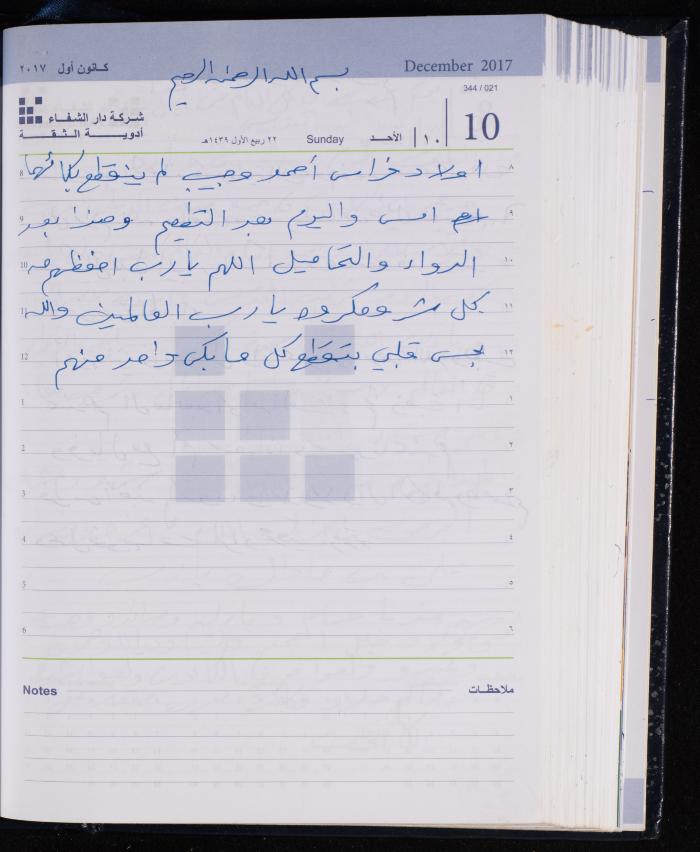 كانون أول ٢٠١٧
December 2017
بسم الله الرحمن الرحيم
344 / 021
شركة دار الشفاء
أدوية الثقة
٢٢ ربيع الأول ١٤٣٩هـ
Sunday
الأحد
١٠
10
8 اولاد فراس أحمد وحبيب لم ينقطع بكائها ٨
9 امس واليوم بعد التطعيم وهذا بعد ٩
10 الدواء والتحاميل اللهم يا رب احفظهم من ١٠
11 كل شر ومكروه يا رب العالمين والله ١١
12 بحس قلبي بتقطع كل ما بكى واحد منهم ١٢
1 ١
2 ٢
3 ٣
4 ٤
5 ٥
6 ٦
Notes ملاحظات